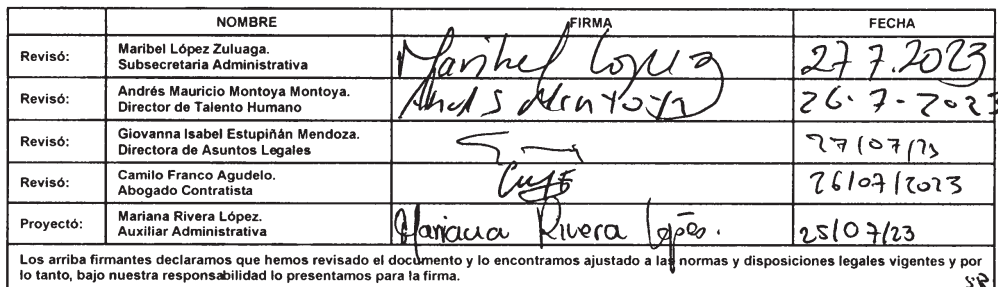 NOMBRE FIRMA FECHA
Revisó: Maribel López Zuluaga.
Subsecretaria Administrativa
Maribel Lopez 27.7.2023
Revisó: Andrés Mauricio Montoya Montoya.
Director de Talento Humano
Andrés Montoya 26-7-2023
Revisó: Giovanna Isabel Estupiñán Mendoza.
Directora de Asuntos Legales
27/07/23
Revisó: Camilo Franco Agudelo.
Abogado Contratista
26/07/2023
Proyectó: Mariana Rivera López.
Auxiliar Administrativa
Mariana Rivera López. 25/07/23
Los arriba firmantes declaramos que hemos revisado el documento y lo encontramos ajustado a las normas y disposiciones legales vigentes y por
lo tanto, bajo nuestra responsabilidad lo presentamos para la firma.